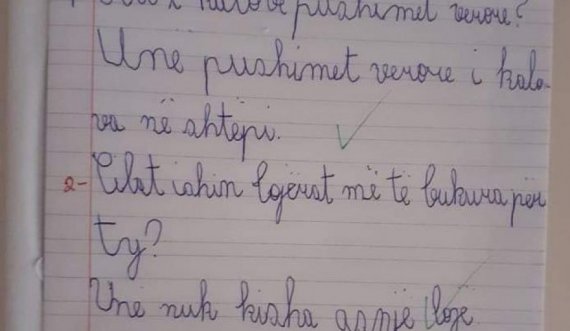 i kalove pushimet verore?
Unë pushimet verore i kalo-
va në shtëpi.
2- Cilat ishin lojërat më të bukura për
ty?
Unë nuk kisha asnjë lojë